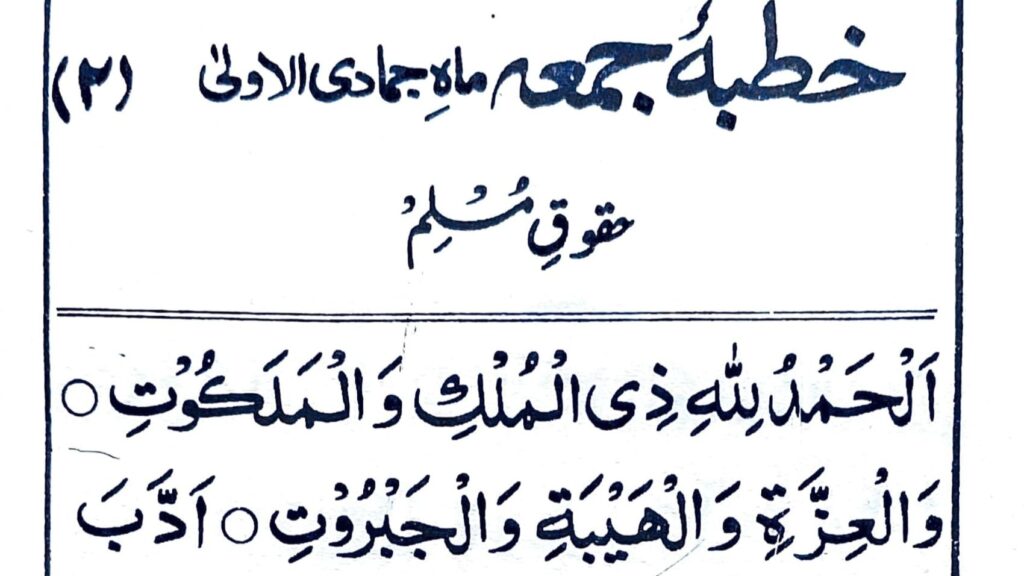 خطبۂ جمعہ ماہِ جمادی الاولیٰ (۲)
حقوقِ مُسْلِمْ
اَلْحَمْدُ لِلّٰهِ ذِی الْمُلْكِ وَ الْمَلَكُوْتِ ○
وَ الْعِزَّةِ وَ الْهَیْبَةِ وَ الْجَبْرُوْتِ ○ اَدَّبَ